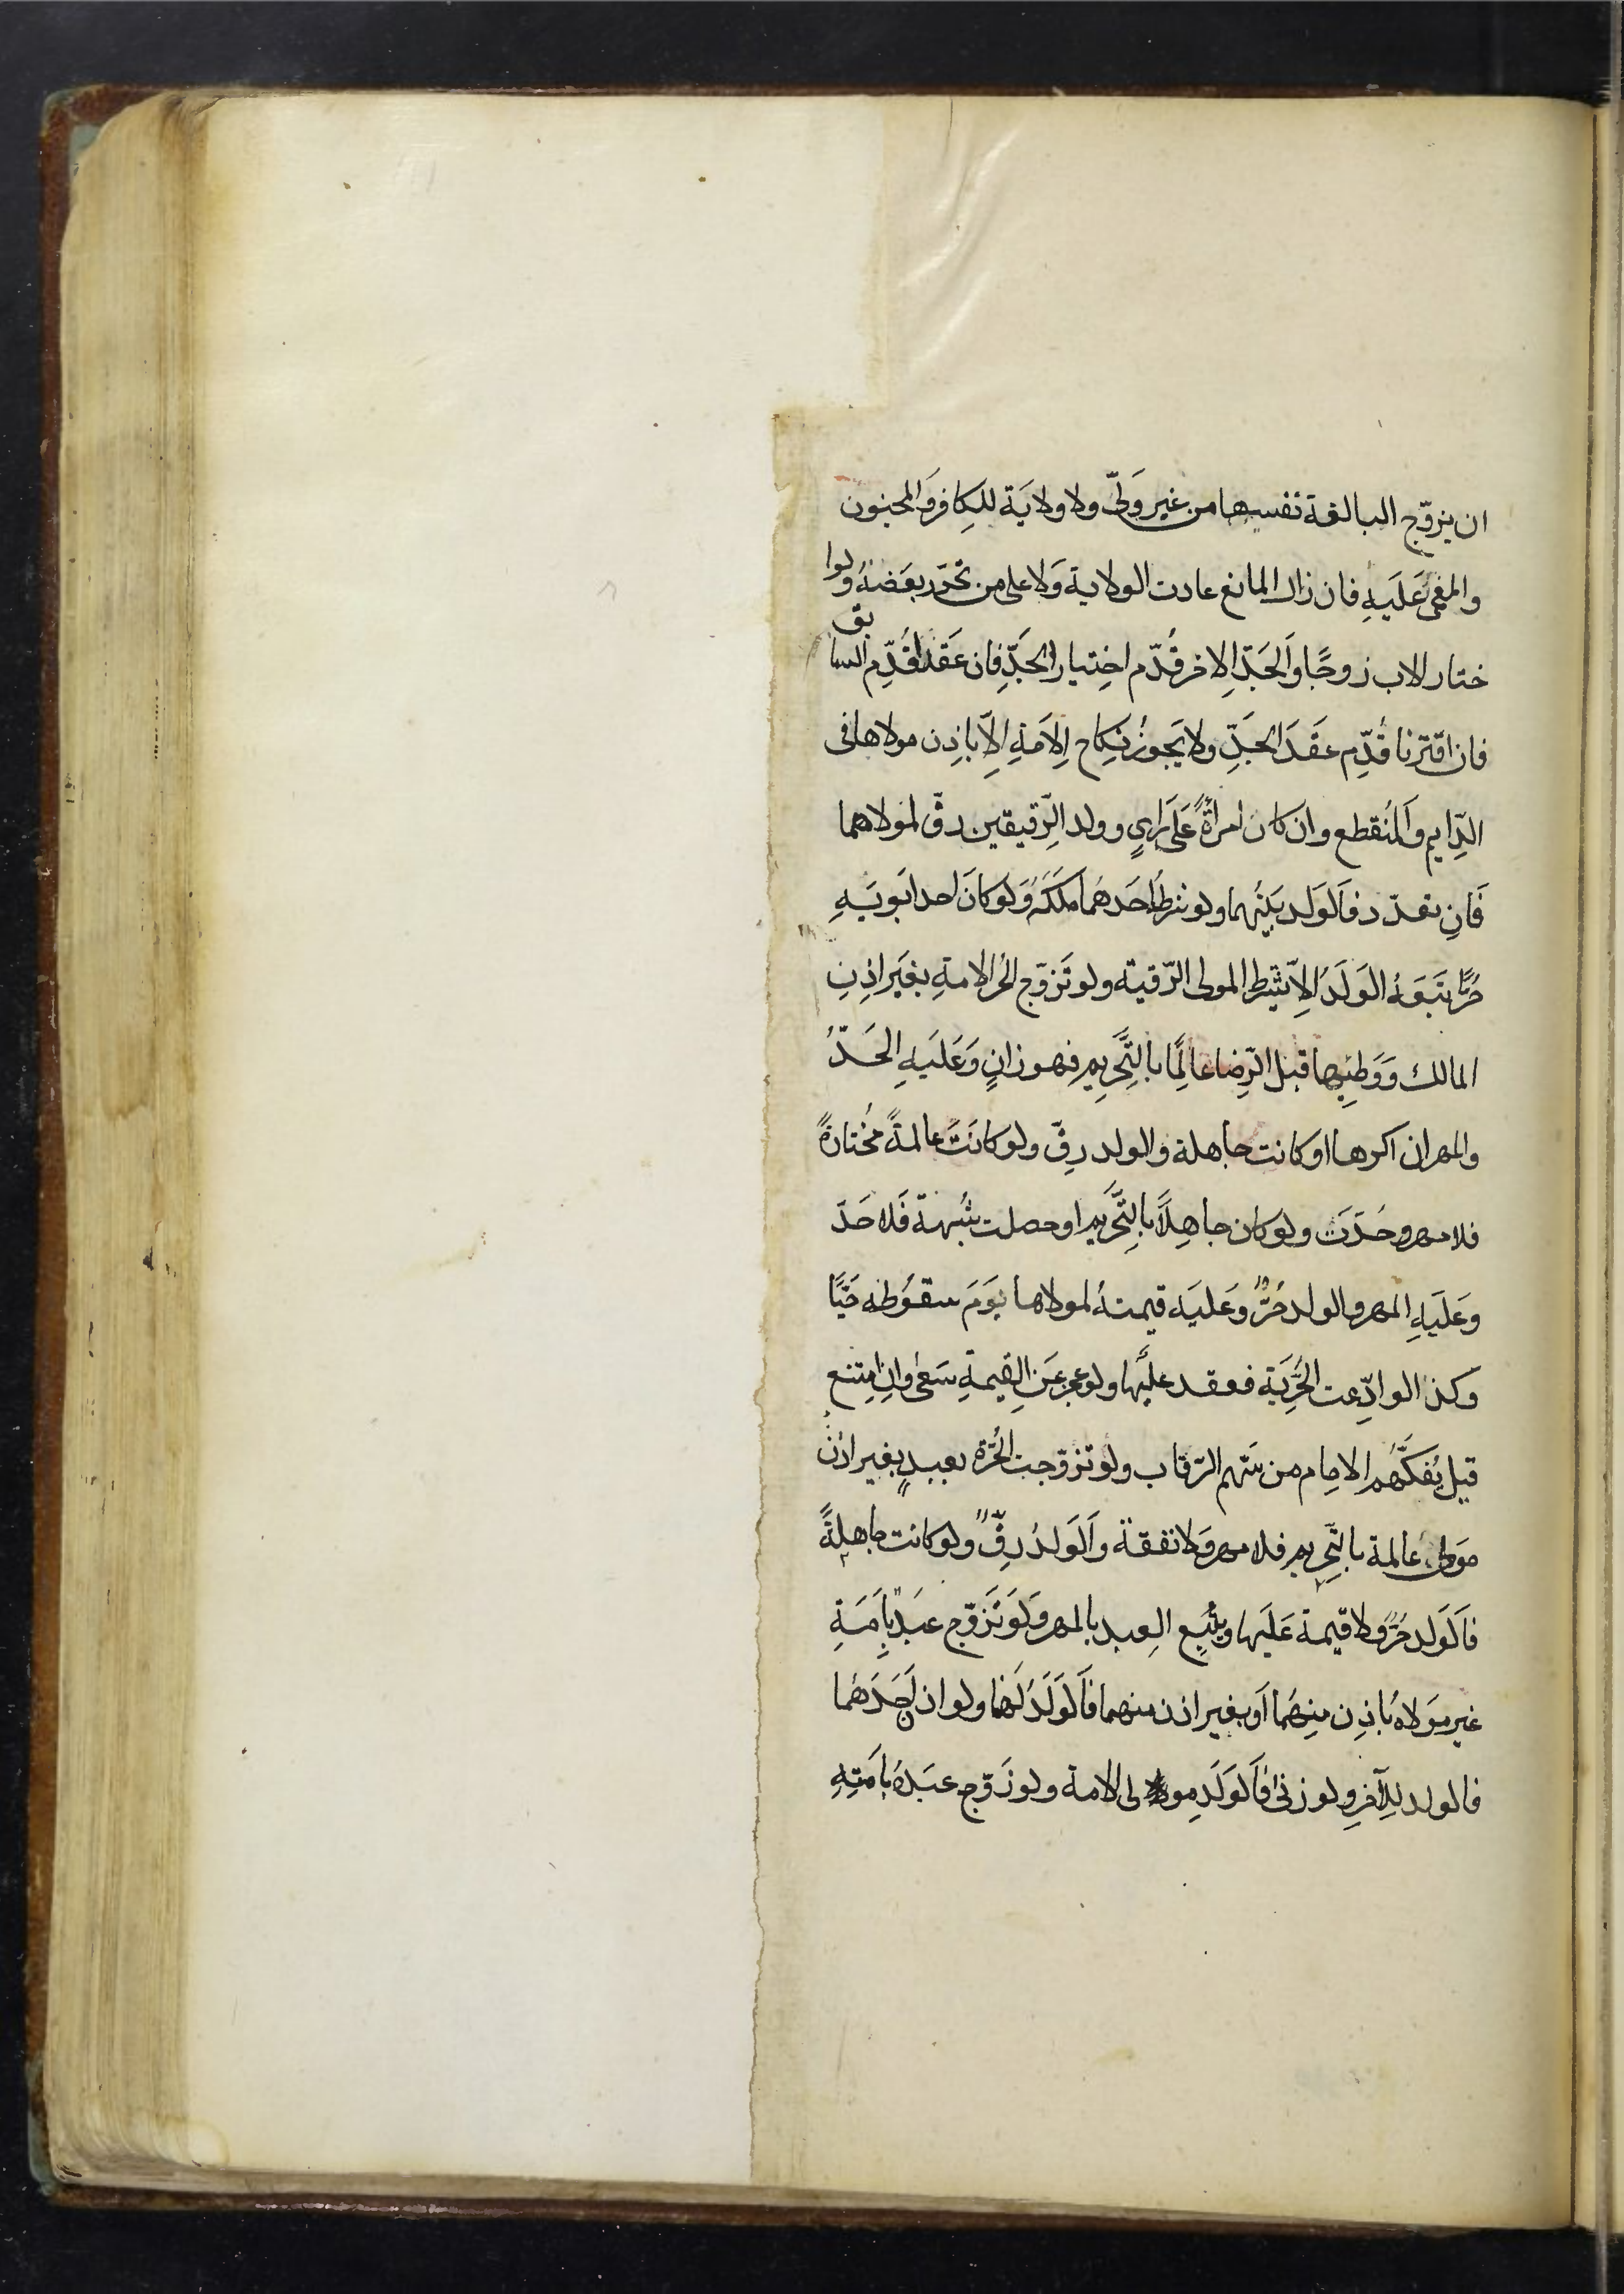 ان يزوّج البالغة نفسها من غير وَليّ ولا ولايَة للكِافر وَالمجنون
والمغمىٰ عَلَيهِ فان زال المانع عادت الولاية وَلا على من تحَرّر بعَضهُ ولوا
ختار الاب زوجًا وَالجَدّ الاخر قُدّم اختِيار الجَدِّ فان عَقَدا قُدِّم السابق
فان اقترنا قُدِّم عقَدَ الجَدِّ ولا يَجوزُ نِكاح الِامَةِ الِاّ باذِن مولاها فى
الدِّايم وَالمنُقطع وان كان امراةً عَلىَ رَايٍ وولد الرِّقيقين رقّ لمولاهما
فَانِ تعدّد فاَلوَلد بَينُهما ولو شرطُ احَدهُما مَلكَهُ وَلو كانَ احد ابَويَهِ
حُرًّا تبَعَهُ الوَلَدُ الِاّ يَشِترط المولى الرّقية ولو تَزوّج الحُر الامةِ بغَير اذِنِ
المالك وَوَطيها قبل الرِّضا عالِمًا بالتَّحِريم فهو زانٍ وَعَلَيهِ الحَدّ
والمهر ان اكرهها او كانت جاهلة والولد رِقّ ولو كانَت عالمةً مخُتارةً
فلا مهر وحُدّتَ ولو كان جاهِلاً بالتَّحرَيم او حصلت شُبهة فَلا حَدّ
وعَلَيهِ المهر والولد حُرّ وعَليَه قيمتهُ لمولاها يوَمَ سقوُطه حَيًّا
وكذا لو ادّعت الحُرِّيَة فعقد عليَها ولو عجز عَنِ القيمةِ سَعىٰ وانِ امِتنع
قيل يُفَكّهُم الامام من سَهم الرّقاب ولو تزوّجت الحُرّة بعبدٍ بغير اذن
مَولى عالمة بالتَّحِريم فلا مهر وَلا نفقة وَالوَلدُ رِقّ ولو كانت جاهلةً
فاَلوَلد حُرّ ولا قيمة عَلَيها ويتُبَع العِبد بالمهر ولَوَ تَزَوّج عبَدٌ باَِمَةِ
غير مَولاهُ باذِن منِهُما اَو بغير اذن منهما فاَلوَلَدُ لهَما ولو اذن احَدَهُما
فالولد للِآخرِ ولو زنىٰ فاَلوَلَد لمولى الامة ولو زَوّج عبَدهُ باَمَتِهِ